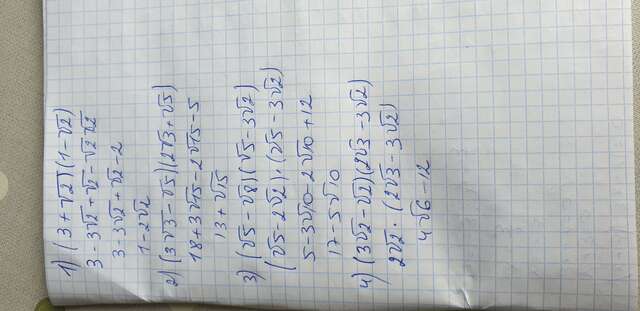 1) (3+√2)(1-√2)
3-3√2+√2-√2√2
3-3√2+√2-2
1-2√2
2) (3√3-√5)(2√3+√5)
18+3√15-2√15-5
13+√15
3) (√5-√8)(√5-3√2)
(√5-2√2)·(√5-3√2)
5-3√10-2√10+12
17-5√10
4) (3√2-√2)(2√3-3√2)
2√2·(2√3-3√2)
4√6-12